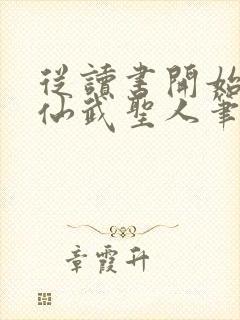 從讀書開始
仙武聖人筆
章霞升